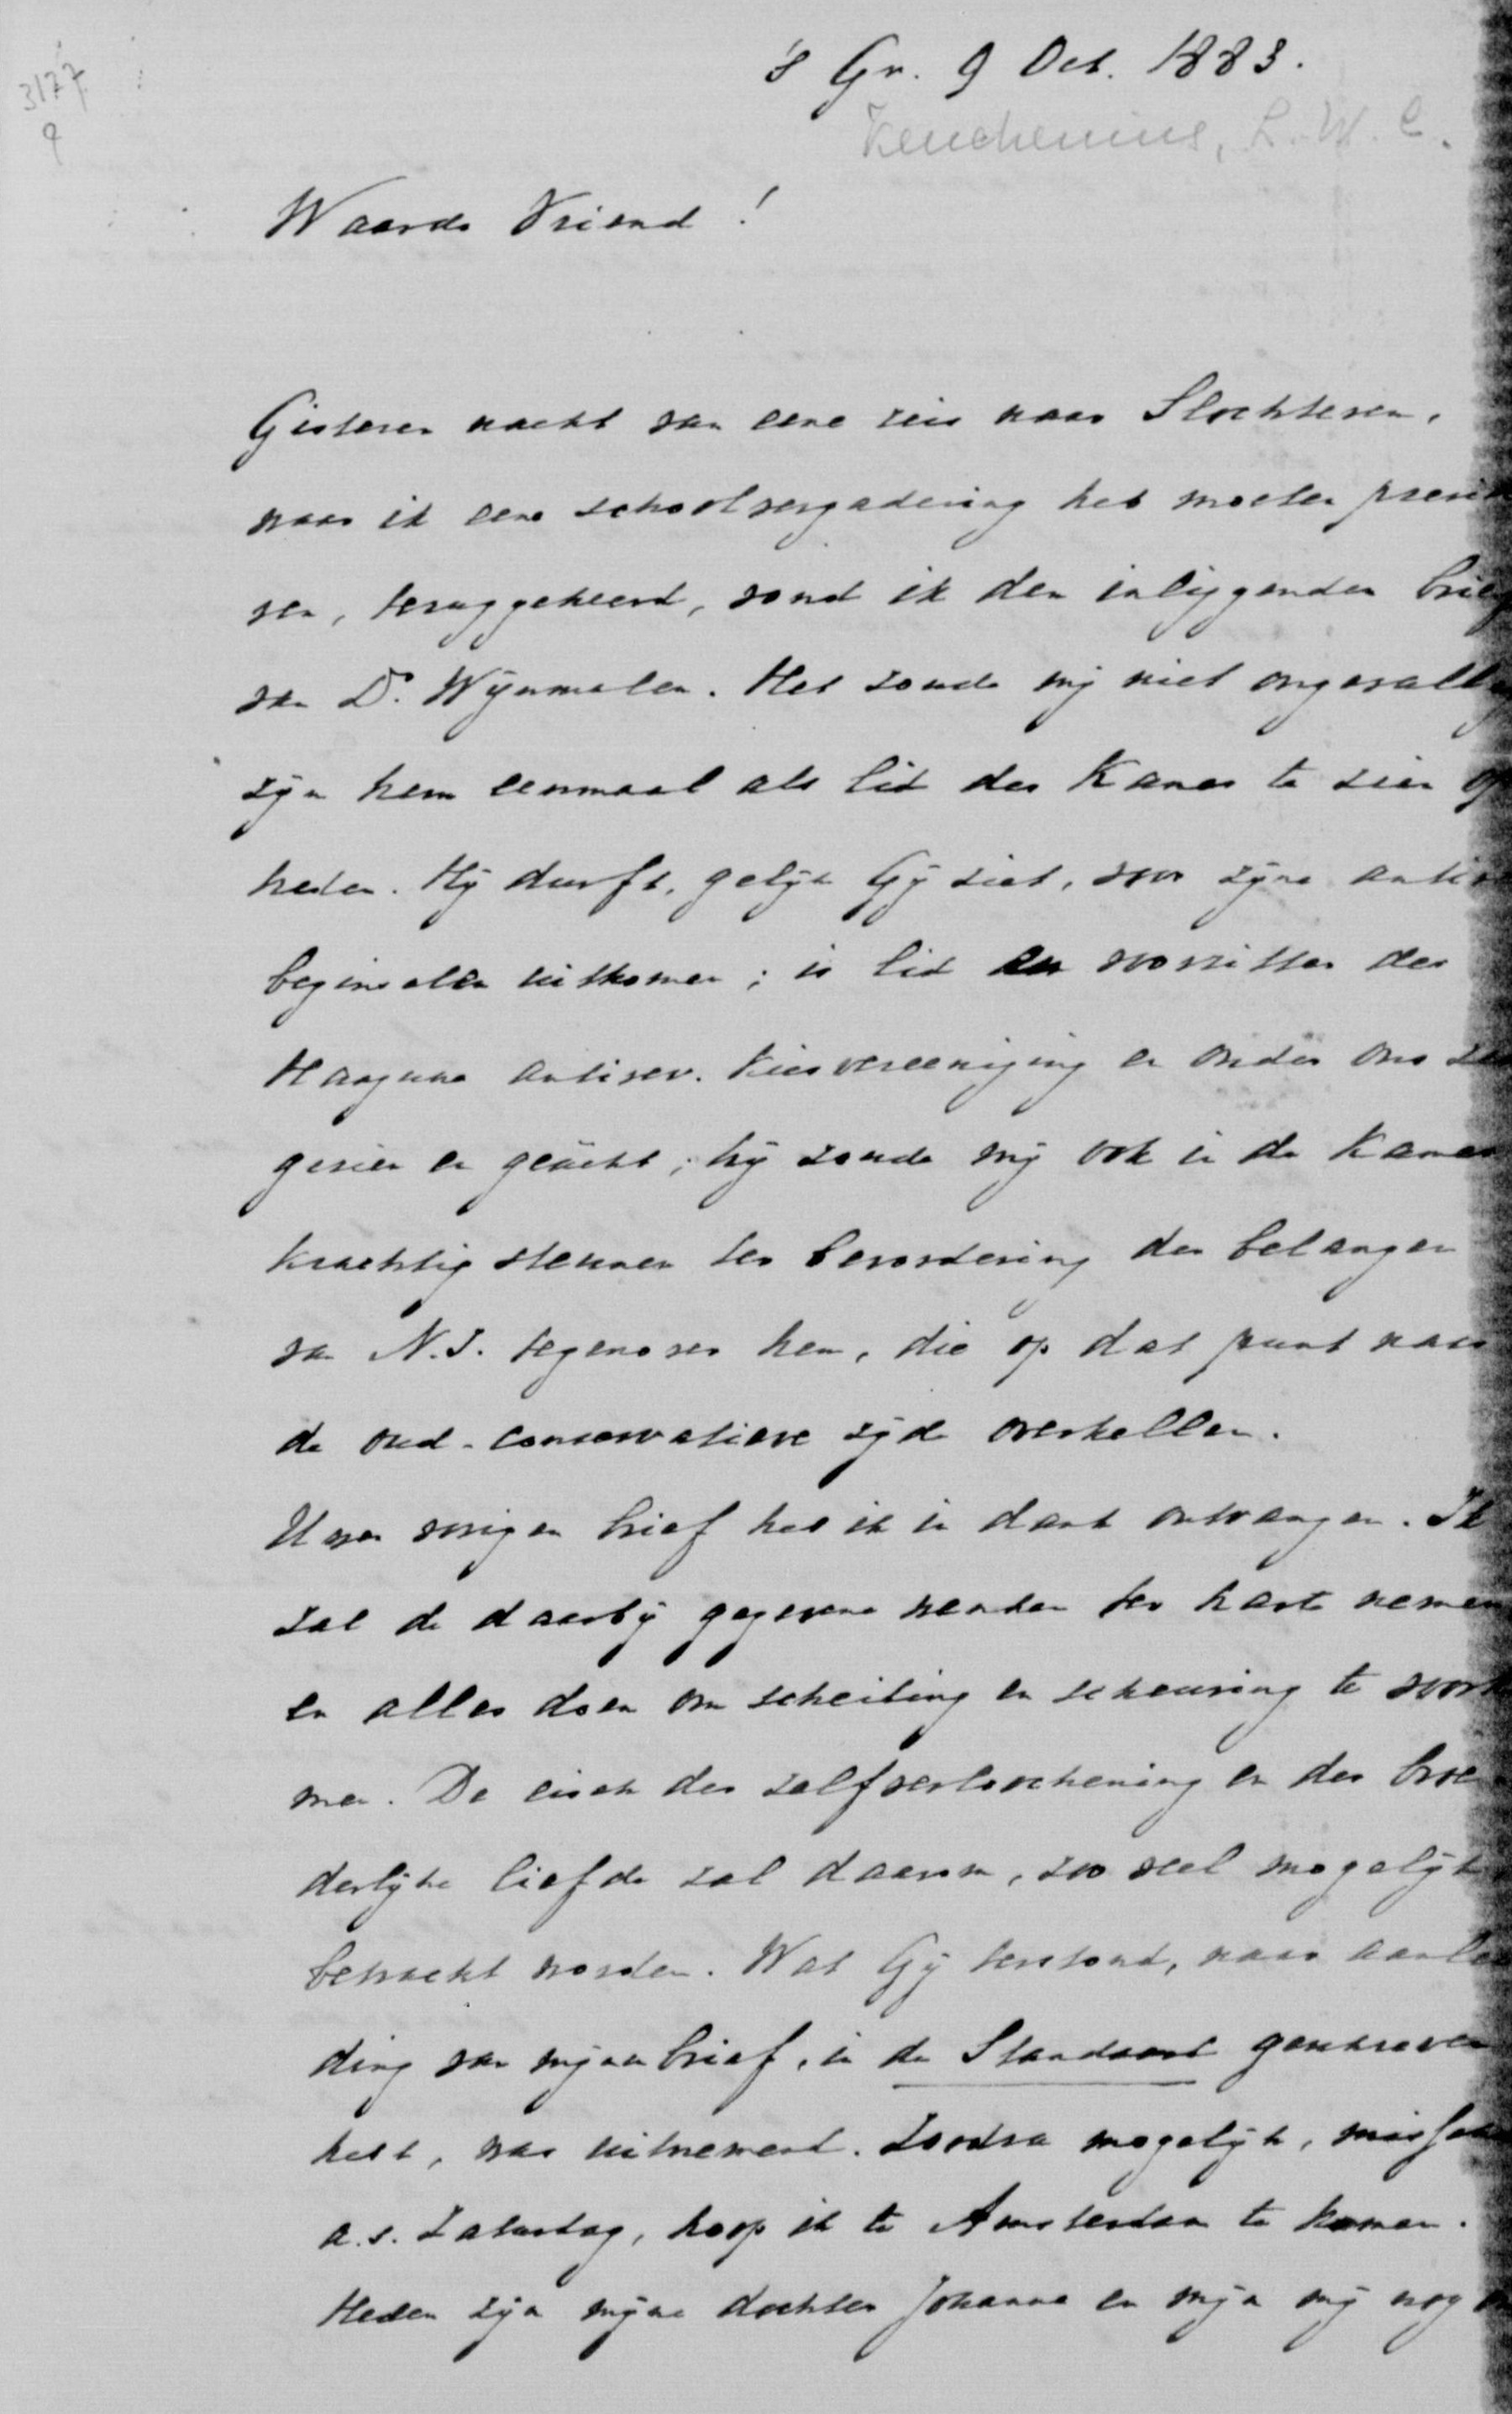 3177
9
's Gr. 9 Oct. 1883.
Keuchenius, L. W. C.
Waarde Vriend!
Gisteren nacht van eene reis naar Slochteren,
waar ik eene schoolvergadering heb moeten presi
ren, teruggekeerd, vond ik den inliggenden brief
van Dr. Wijnmalen. Het zoude mij niet ongevallig
zijn hem eenmaal als lid der Kamer te zien op
treden. Hij durft, gelijk Gij ziet, voor zijne antir
beginselen uitkomen; is lid en voorzitter der
Haagsche antirev. kiesvereeniging en onder ons
gezien en geächt; hij zoude mij ook in de Kamer
krachtig steunen ter bevordering der belangen
van N.I. tegenover hen, die op dat punt naar
de oud-conservatieve zijde overhellen.
Uwen vorigen brief heb ik in dank ontvangen. Ik
zal de daarbij gegevene wenken ter harte nemen
en alles doen om scheiding en scheuring te voorko
men. De eisch der zelfverloochening en der broe
derlijke liefde zal daarom, zoo veel mogelijk
betracht worden. Wat Gij terstond, naar aanlei
ding van mijnen brief, in de Standaard geschreven
hebt, was uitnemend. Zoodra mogelijk, misschien
a.s. Zaturdag, hoop ik te Amsterdam te komen.
Heden zijn mijne dochter Johanna en mijn mij nog